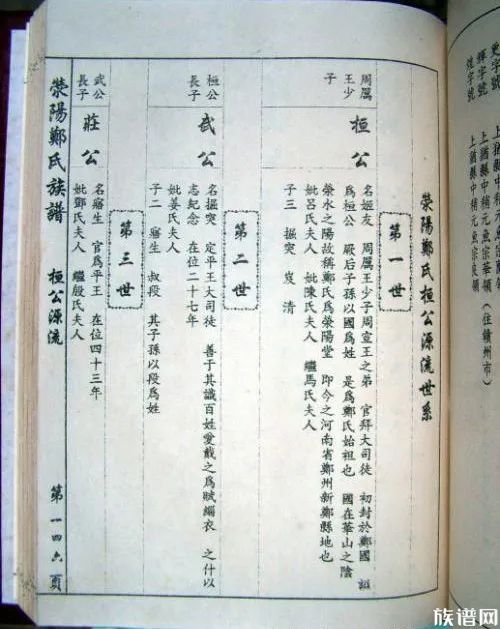 滎陽鄭氏桓公源流世系
第一世
周厲
王少
子
桓公
名姬友 周厲王少子周宣王之弟 官拜大司徒 初封於鄭國 謚
為桓公 厥后子孫以國為姓 是為鄭氏始祖也 國在華山之陰
滎水之陽故稱鄭氏為滎陽堂 即今之河南省鄭州新鄭縣地也
妣呂氏夫人 妣陳氏夫人 繼馬氏夫人
子三 掘突 岌 清
第二世
桓公
長子
武公
名掘突 定平王大司徒 善于其識百姓愛戴之為賦緇衣 之什以
志紀念 在位二十七年
妣姜氏夫人
子二 寤生 叔段 其子孫以段為姓
第三世
武公
長子
莊公
名寤生 官為平王 在位四十三年
妣鄧氏夫人 繼殷氏夫人
滎陽鄭氏族譜 桓公源流 第一四六頁
輝字號 上猶縣中稍元魚宗華領 (住贛州市)
煌字號 上猶縣中稍元魚宗良領
族谱网